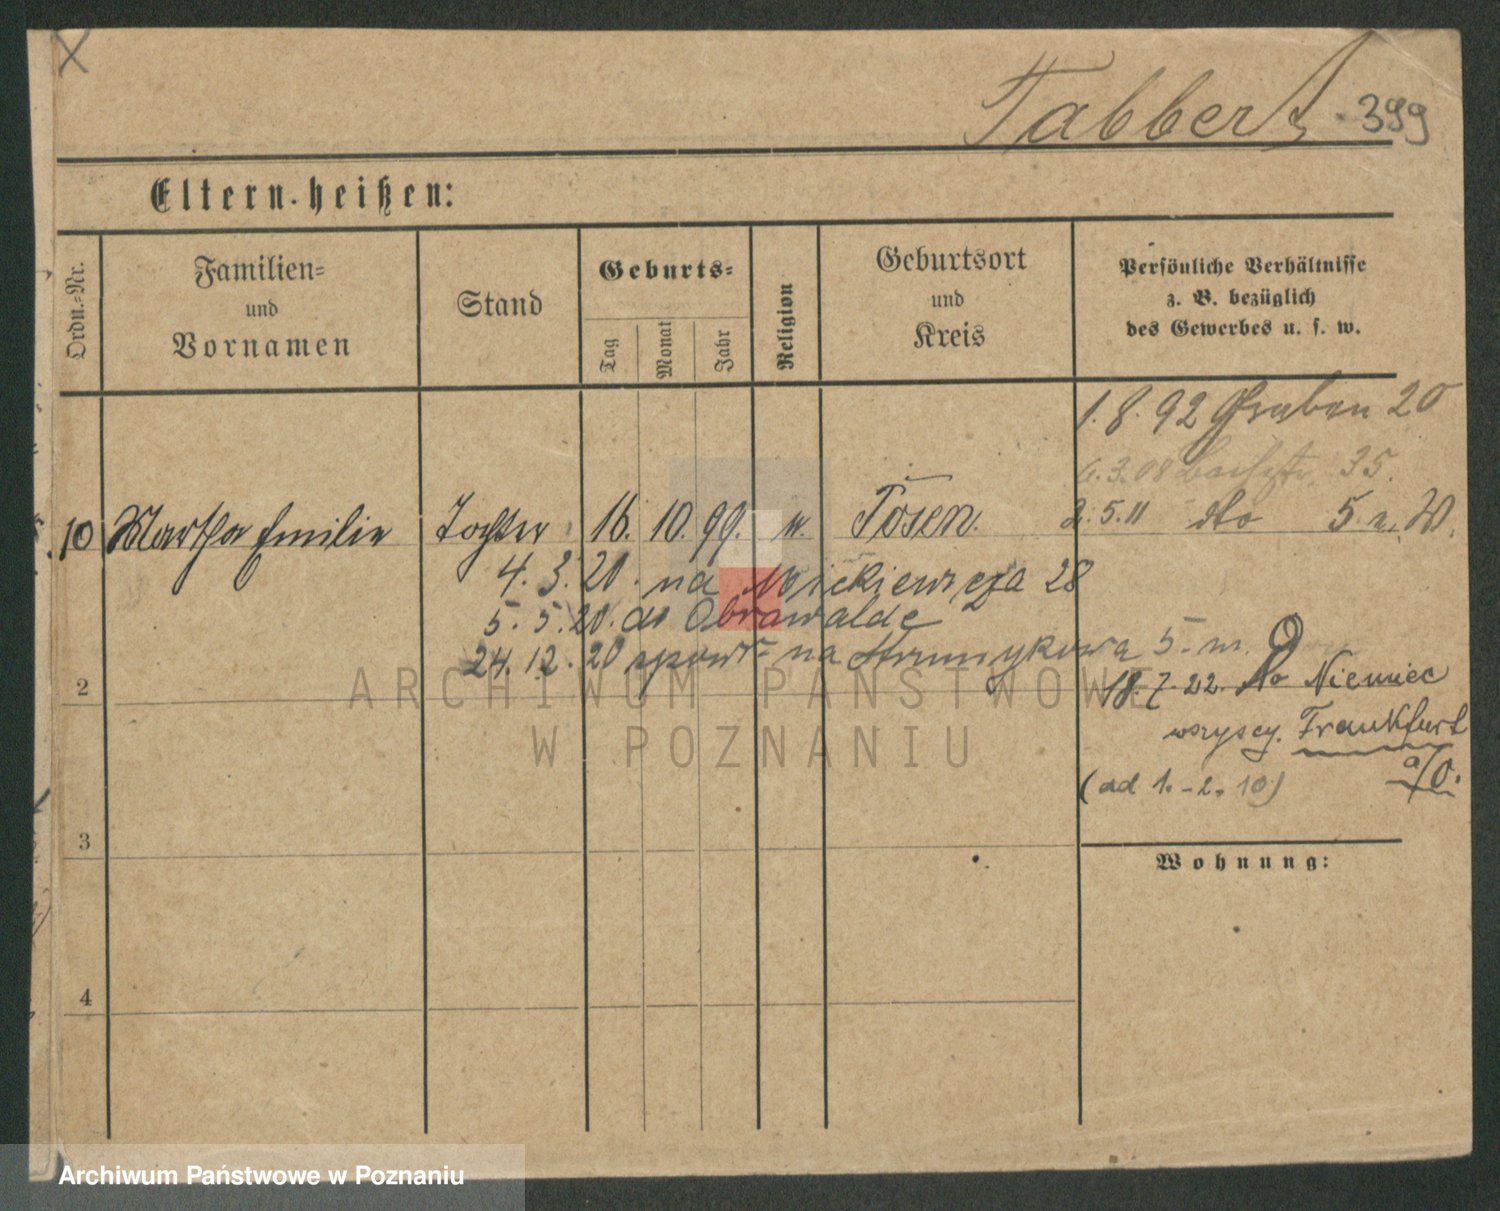 Tabbert 399
Eltern heißen:
Ordn.-Nr.
Familien-
und
Vornamen
Stand
Geburts-
Tag
Monat
Jahr
Religion
Geburtsort
und
Kreis
Persönliche Verhältnisse
z. B. bezüglich
des Gewerbes u. s. w.
1.8.92 Graben 20
6.3.08 35.
2.5.11 dto 5.
10 Martha Emilie Tochter 16. 10. 99. Posen.
4.3.20. na Mickiewicza 28
5.5.20. do Obrawalde
24.12.20 na Strumykowa 5. m.
18.7.22. do Niemiec
wszyscy. Frankfurt
a/O.
(ad 1.-2. 10)
2
3
4
Wohnung:
ARCHIWUM PAŃSTWOWE
W POZNANIU
Archiwum Państwowe w Poznaniu